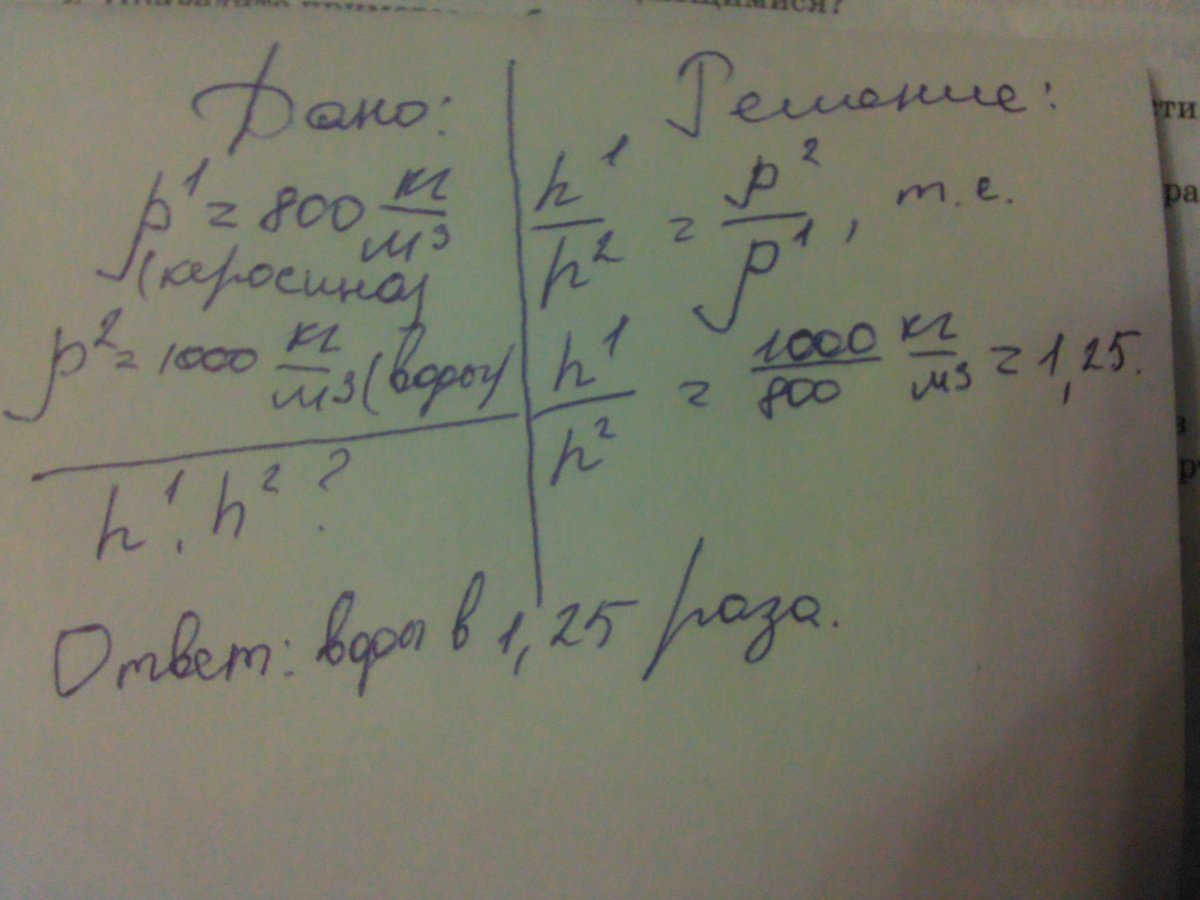 Дано:
ρ¹ = 800 кг/м³
(керосина)
ρ² = 1000 кг/м³ (воды)
h¹, h² ?
Решение:
h¹/h² = ρ²/ρ¹, т.е.
h¹/h² = 1000/800 кг/м³ = 1,25.
Ответ: воды в 1,25 раза.